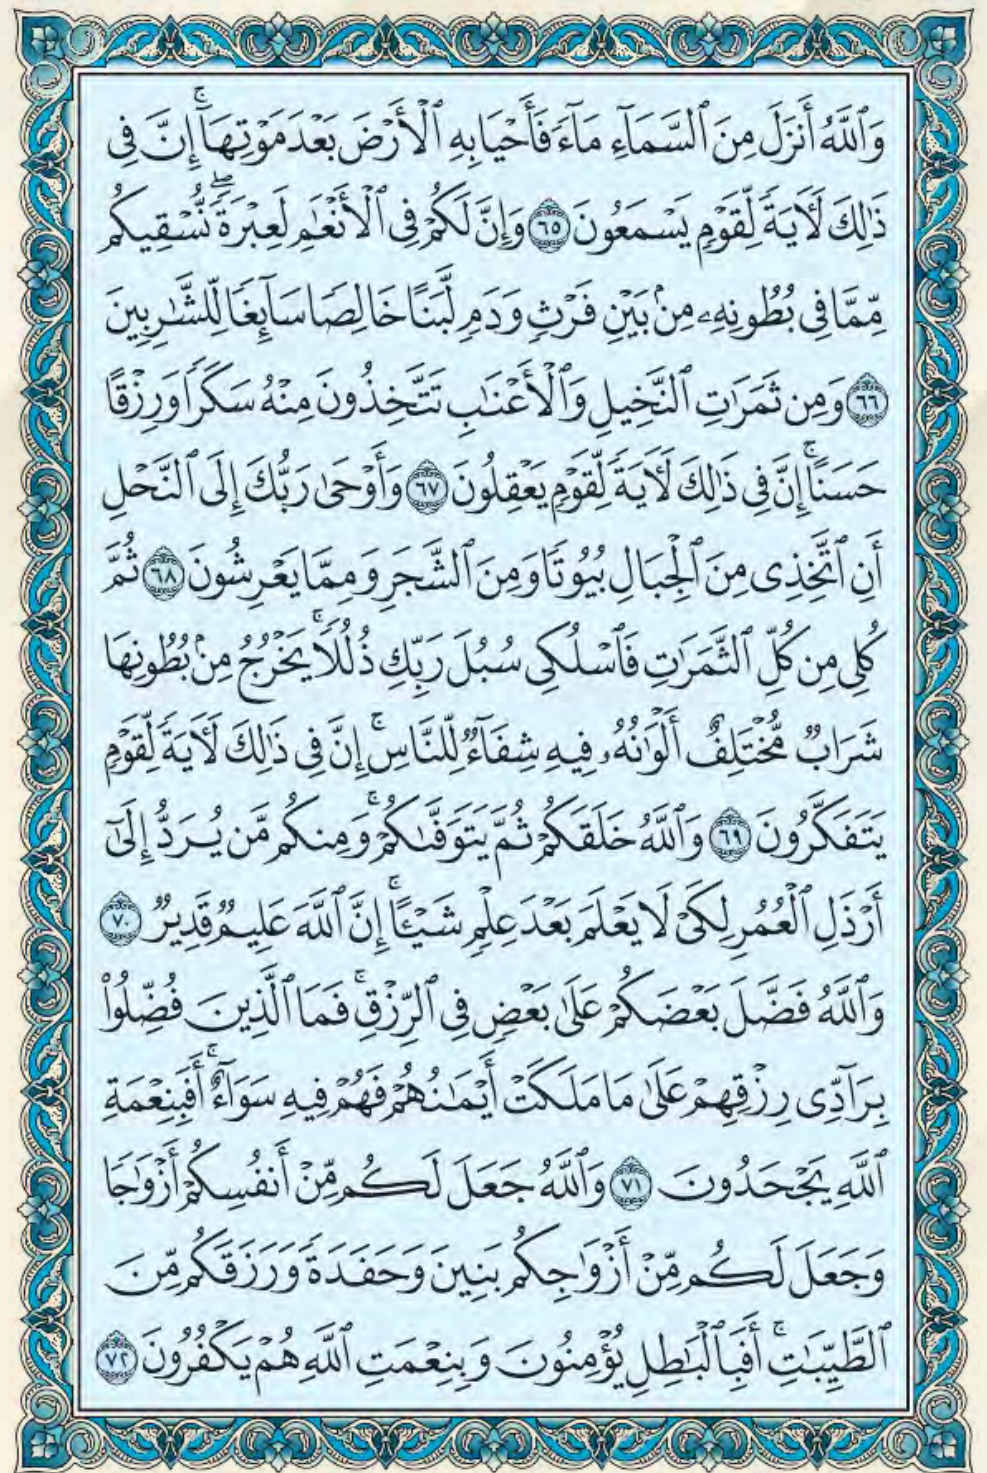 وَٱللَّهُ أَنزَلَ مِنَ ٱلسَّمَآءِ مَآءً فَأَحْيَا بِهِ ٱلْأَرْضَ بَعْدَ مَوْتِهَآ ۚ إِنَّ فِى
ذَٰلِكَ لَـَٔايَةً لِّقَوْمٍ يَسْمَعُونَ ٦٥ وَإِنَّ لَكُمْ فِى ٱلْأَنْعَـٰمِ لَعِبْرَةً ۖ نُّسْقِيكُم
مِّمَّا فِى بُطُونِهِۦ مِنۢ بَيْنِ فَرْثٍ وَدَمٍ لَّبَنًا خَالِصًا سَآئِغًا لِّلشَّـٰرِبِينَ
٦٦ وَمِن ثَمَرَٰتِ ٱلنَّخِيلِ وَٱلْأَعْنَـٰبِ تَتَّخِذُونَ مِنْهُ سَكَرًا وَرِزْقًا
حَسَنًا ۗ إِنَّ فِى ذَٰلِكَ لَـَٔايَةً لِّقَوْمٍ يَعْقِلُونَ ٦٧ وَأَوْحَىٰ رَبُّكَ إِلَى ٱلنَّحْلِ
أَنِ ٱتَّخِذِى مِنَ ٱلْجِبَالِ بُيُوتًا وَمِنَ ٱلشَّجَرِ وَمِمَّا يَعْرِشُونَ ٦٨ ثُمَّ
كُلِى مِن كُلِّ ٱلثَّمَرَٰتِ فَٱسْلُكِى سُبُلَ رَبِّكِ ذُلُلًا ۚ يَخْرُجُ مِنۢ بُطُونِهَا
شَرَابٌ مُّخْتَلِفٌ أَلْوَٰنُهُۥ فِيهِ شِفَآءٌ لِّلنَّاسِ ۗ إِنَّ فِى ذَٰلِكَ لَـَٔايَةً لِّقَوْمٍ
يَتَفَكَّرُونَ ٦٩ وَٱللَّهُ خَلَقَكُمْ ثُمَّ يَتَوَفَّىٰكُمْ ۚ وَمِنكُم مَّن يُرَدُّ إِلَىٰٓ
أَرْذَلِ ٱلْعُمُرِ لِكَىْ لَا يَعْلَمَ بَعْدَ عِلْمٍ شَيْـًٔا ۚ إِنَّ ٱللَّهَ عَلِيمٌ قَدِيرٌ ٧٠
وَٱللَّهُ فَضَّلَ بَعْضَكُمْ عَلَىٰ بَعْضٍ فِى ٱلرِّزْقِ ۚ فَمَا ٱلَّذِينَ فُضِّلُوا۟
بِرَآدِّى رِزْقِهِمْ عَلَىٰ مَا مَلَكَتْ أَيْمَـٰنُهُمْ فَهُمْ فِيهِ سَوَآءٌ ۚ أَفَبِنِعْمَةِ
ٱللَّهِ يَجْحَدُونَ ٧١ وَٱللَّهُ جَعَلَ لَكُم مِّنْ أَنفُسِكُمْ أَزْوَٰجًا
وَجَعَلَ لَكُم مِّنْ أَزْوَٰجِكُم بَنِينَ وَحَفَدَةً وَرَزَقَكُم مِّنَ
ٱلطَّيِّبَـٰتِ ۚ أَفَبِٱلْبَـٰطِلِ يُؤْمِنُونَ وَبِنِعْمَتِ ٱللَّهِ هُمْ يَكْفُرُونَ ٧٢